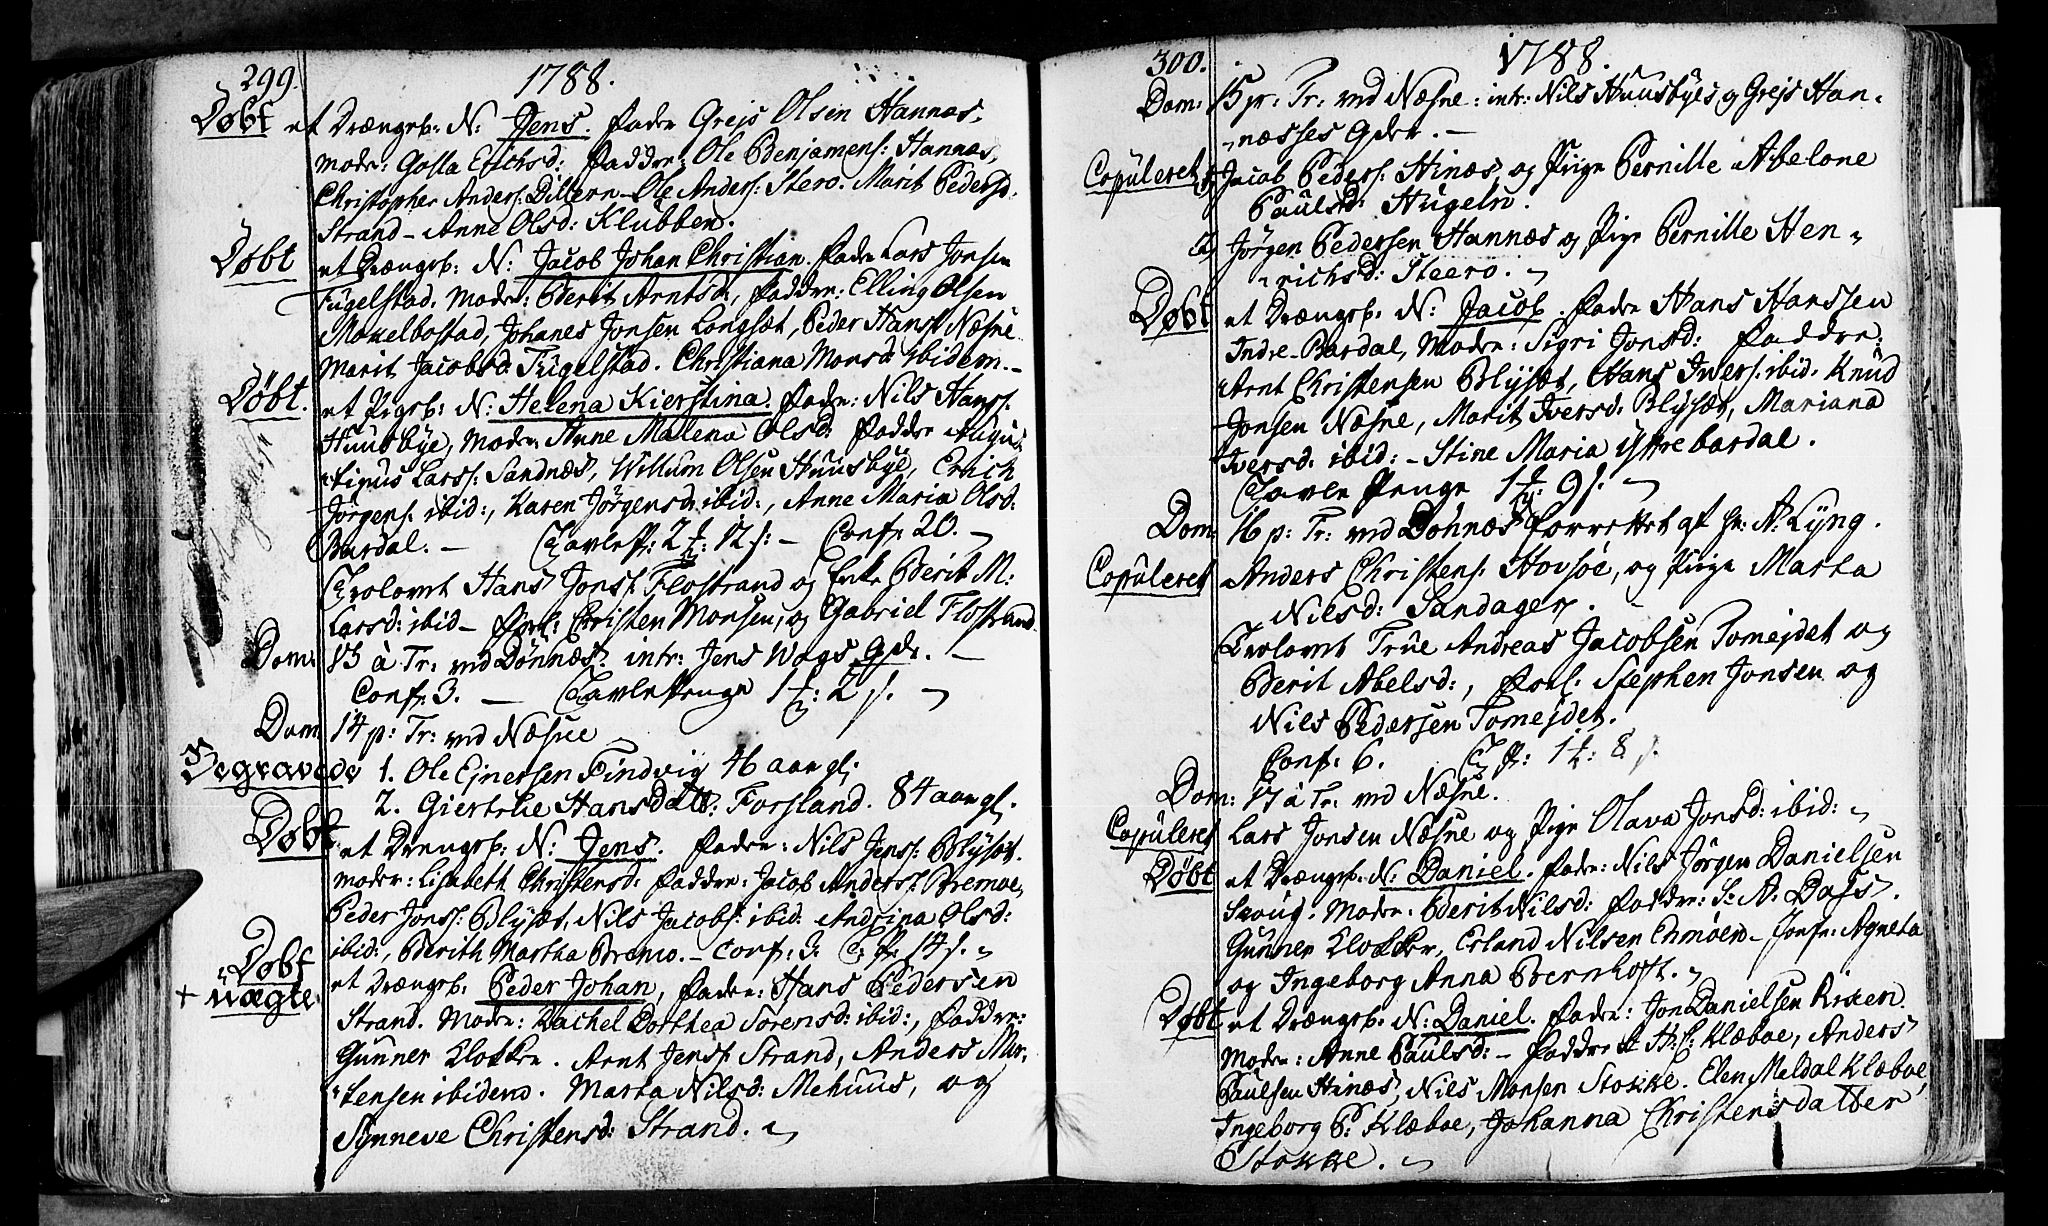 299. 1788.
Døbt et Drængeb: N: Jens. Fader Grejs Olsen Hannæs,
Moder: Golla Erichsd: Faddre: Ole Benjamens: Hannæs,
Christopher Anders: Dillern - Ole Anders: Stero. Marit Pedersd.
Strand - Anne Olsd: Klubben.
Døbt et Drængeb: N: Jacob Johan Christian. Fader Lars Jonsen
Fugelstad. Moder: Berit Arntsd:, Faddre: Elling Olsen
Mouelbostad, Johanes Jonsen Langsæt, Peder Hans: Næsne
Marit Jacobsd Fugelstad. Christiana Monsd ibidem. -
Døbt. et Pigeb: N: Helena Kierstina. Fader: Nils Hans:
Huusbye, Moder Anne Malena Olsd: Faddre Augu=
=stinus Lars: Sandnæs, Willum Olsen Huusbye, Erich
Jørgens: ibid:, Karen Jørgensd: ibid:, Anne Maria Olsd:
Bardal. - Tavlep: 2 12 s: - Conf: 20. -
Trolovet Hans Jons: Flostrand og Enke Berit M:
Larsd: ibid - Forl: Christen Monsen, og Gabriel Flostrand.
Dom: 13 à Tr: ved Dønnæs. intr: Jens Wogs Qde. -
Conf: 3. - Tavlepenge 1 2 s. -
Dom 14 p: Tr: ved Næsne
Begravede 1. Ole Ejnersen Findvig 46 aar gl:
2. Giertrue Hansdatt: Forsland. 84 aar gl.
Døbt et Drengeb: N: Jens. Fader: Nils Jens: Blysæt.
Moder: Lisabeth Christensd: Faddre: Jacob Anders: Bremoe,
Peder Jons: Blysæt, Nils Jacobs: ibid: Andrina Olsd:
ibid:, Berith Martha Bremo. - Conf: 3. T: P: 14 s. -
Døbt et Drængeb: Peder Johan, Fader: Hans Pedersen
+ Strand. Moder: Rachel Dorthea Sørensd: ibid:, Faddre:
Gunner Klokker. Arnt Jens: Strand, Anders Mor=
=tensen ibidem. Marta Nilsd: Mehuus, og
Synneve Christensd: Strand. -
300. 1788.
Dom: 15 p: Tr: ved Næsne: intr: Nils Huusbyes, og Grejs Han=
=næsses Qder. -
Copuleret Jacob Peders: Hinæs, og Pige Pernille Abelone
Paulsd: Hugeln.
Jørgen Pedersen Hannæs og Pige Pernille Hen=
=richsd: Steero. -
Døbt et Drængeb: N: Jacob. Fader Hans Hanssen
Indre-Bardal, Moder: Sigri Jonsd: Faddre:
Arnt Christensen Blysæt, Hans Ivers: ibid: Knud
Jonsen Næsne, Marit Iversd: Blysæt, Mariana
Iversd: ibid: - Stine Maria yttre bardal.
Tavle Penge 1 9 s. -
Dom: 16 p: Tr: ved Dønnæs forrettet af Hr: A: Lyng.
Copuleret Anders Christens: Hovsøe, og Pige Marta
Nilsd: Sandager.
Trolovet True Andreas Jacobsen Tomejdet og
Berit Abelsd:, Forl: Stephen Jonsen og
Nils Pedersen Tomejdet.
Conf: 6. T: P: 1 8 s.
Dom: 17 à Tr: ved Næsne.
Copuleret Lars Jonsen Næsne og Pige Olava Jonsd: ibid: -
Døbt et Drængeb: N: Daniel. Fader: Nils Jørgen Danielsen
Skoug. Moder: Berit Nilsd: Faddre: S: A: Dass.
Gunner Klokker, Erland Nilsen Enmoen - Jomfr: Agneta
og Ingeborg Anna Bernhoft. -
Døbt et Drængeb: N: Daniel. Fader: Jon Danielsen Risen
Moder: Anne Paulsd: - Faddre H: C: Klæboe, Anders
Paulsen Hinæs, Nils Monsen Stokke. Elen Meldal Klæboe,
Ingeborg P: Klæboe, Johanna Christensdatter
Stokke. -